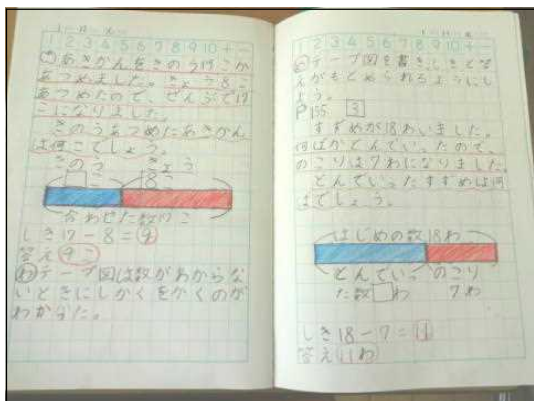 1 2 3 4 5 6 7 8 9 10 + −
あきかんをきのう
あつめました。きょう8こ
あつめたので、ぜんぶで17
こになりました。
きのうあつめたあきかん
は何こでしょう。
きのう きょう
□こ 8こ
合わせた数17こ
しき17−8=9
答え9こ
テープ図は数がわからな
いときにしかくをかくのが
わかった。
1 2 3 4 5 6 7 8 9 10 + −
テープ図を書き、しきと答
えがもとめられるようにし
よう。
P155 3
すずめが18わいました。
何ばかとんでいったので、
のこりは7わになりました。
とんでいったすずめは何
ばでしょう。
はじめの数18わ
とんでいっ のこり
た数□わ 7わ
しき18−7=11
答え11わ